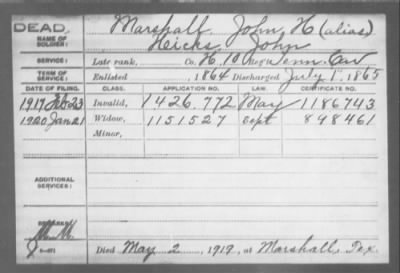 DEAD.
Marshall, John H (alias)
NAME OF SOLDIER:
Hicks, John
SERVICE:
Late rank, Co. H, 10 Reg't Tenn. Cav
TERM OF SERVICE:
Enlisted , 1864 Discharged July 1, 1865
DATE OF FILING. CLASS. APPLICATION NO. LAW. CERTIFICATE NO.
1917 Feb 23 Invalid, 1426,772 May 1186743
1920 Jan 21 Widow, 1151527 Sept 898461
Minor,
ADDITIONAL SERVICES:
REMARKS:
Died May 2, 1919, at Marshall, Tex.